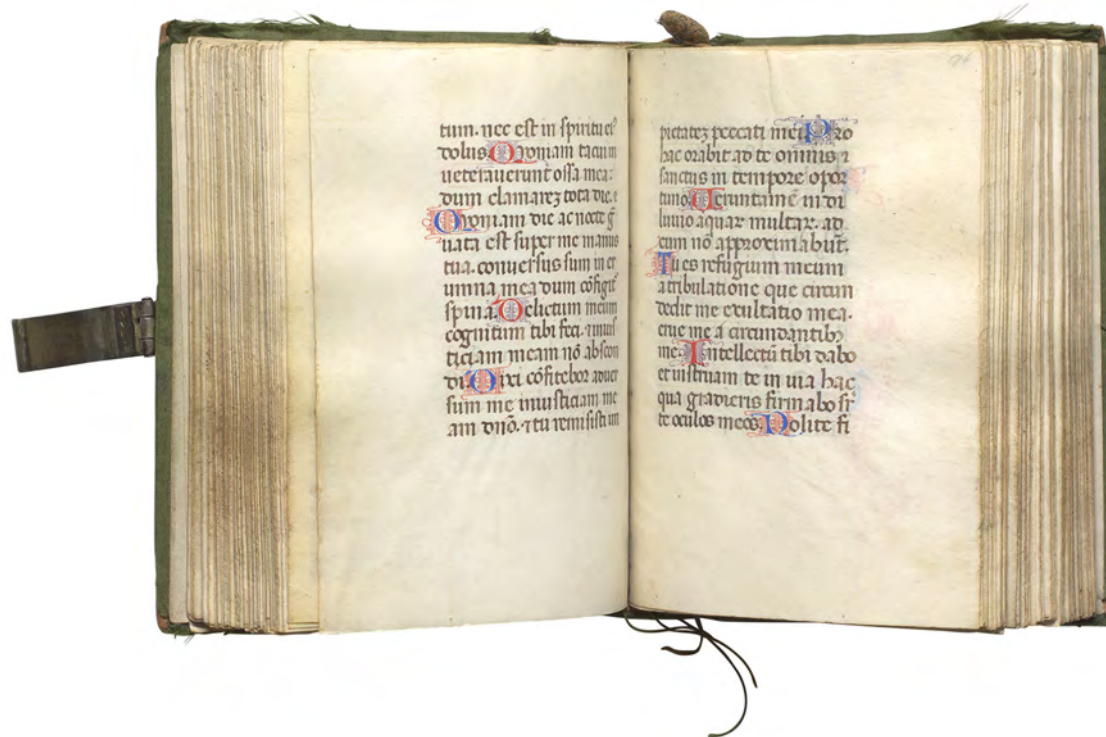 tum. nec est in spiritu eiꝰ
dolus. Quoniam tacui in
ueterauerunt ossa mea:
dum clamareꝫ tota die.
Quoniam die ac nocte g̃
uata est super me manus
tua. conuersus sum in er
umna mea dum cõfigit᷑
spina. Delictum meum
cognitum tibi feci. ⁊ inius
ticiam meam nõ abscon
di. Dixi cõfitebor aduer
sum me iniusticiam me
am dnõ. ⁊ tu remisisti im
pietateꝫ peccati mei. Pro
hac orabit ad te omnis
sanctus in tempore opor
tuno. Ueruntamẽ in di
luuio aquaꝝ multaꝝ. ad
eum nõ approximabũt.
Tu es refugium meum
a tribulatione que circum
dedit me exultatio mea.
erue me a circundantibꝫ
me. Intellectũ tibi dabo
et instruam te in uia hac
qua gradieris firmabo sr̃
te oculos meos. Nolite fi